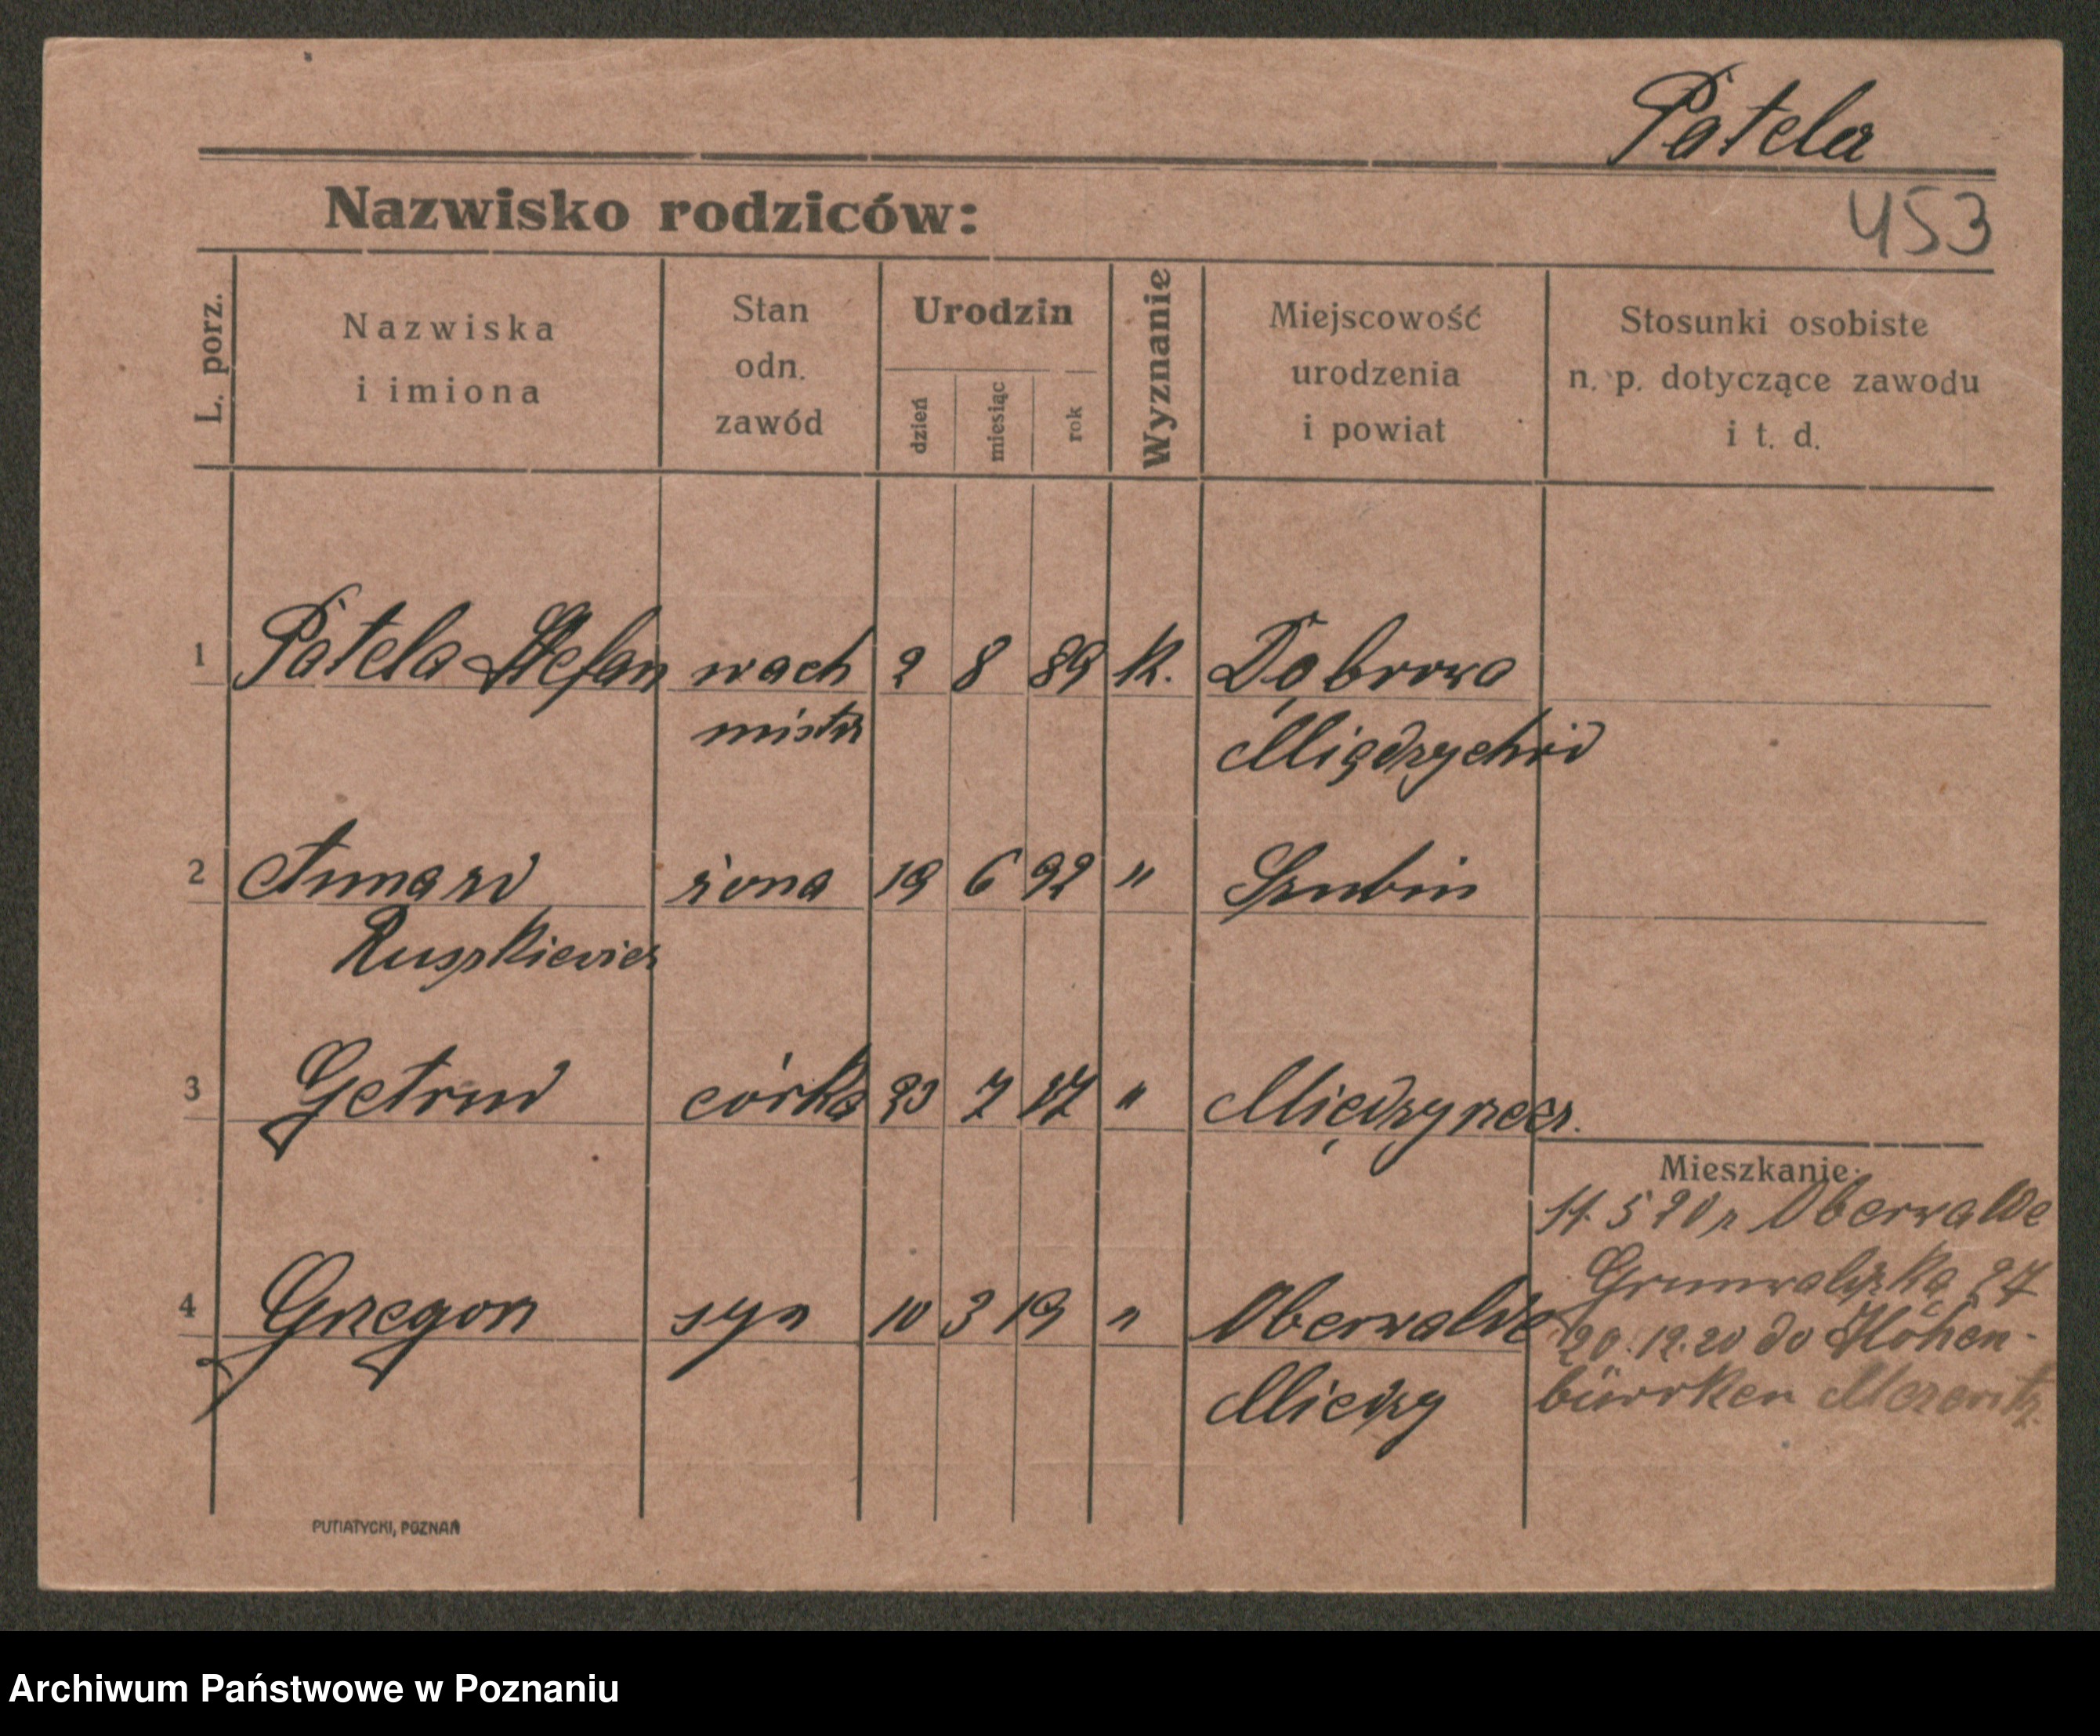 Patela
Nazwisko rodziców:
453
L. porz.
Nazwiska
i imiona
Stan
odn.
zawód
Urodzin
dzień
miesiąc
rok
Wyznanie
Miejscowość
urodzenia
i powiat
Stosunki osobiste
n. p. dotyczące zawodu
i t. d.
1 Patela Stefan wach 2 8 89 k. Dąbrowa
mistrz Międzychód
2 Anna żona 19 6 92 " Szubin
Ruszkiewicz
3 Getrud córka 23 7 17 " Międzyrzecz.
Mieszkanie:
11. 5 20 z Oberwalde
Grunwaldzka 27
4 Grzegorz syn 10 3 19 " Oberwalde
20. 12. 20 do Höhen-
Miedzy
Mezeritz.
PUTIATYCKI, POZNAŃ
Archiwum Państwowe w Poznaniu